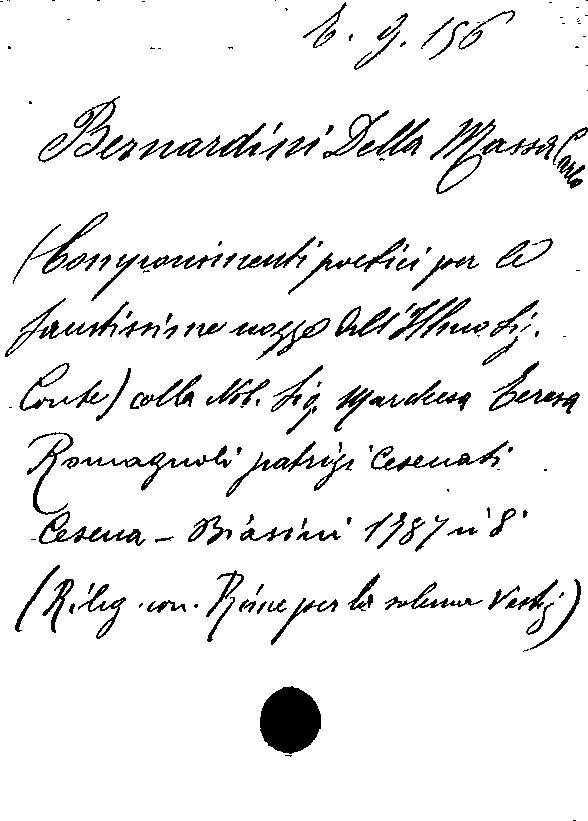 E. g. 156
Bernardini Della Massa Carlo
(Componimenti poetici per le
faustissime nozze dell'Illmo Sig.
Conte) colla Nob. Sig. Marchesa Teresa
Romagnoli patrizi Cesenati
Cesena - Biasini 1787 in 8°
(Rileg. con. Rime per la solenne Vestiz.)